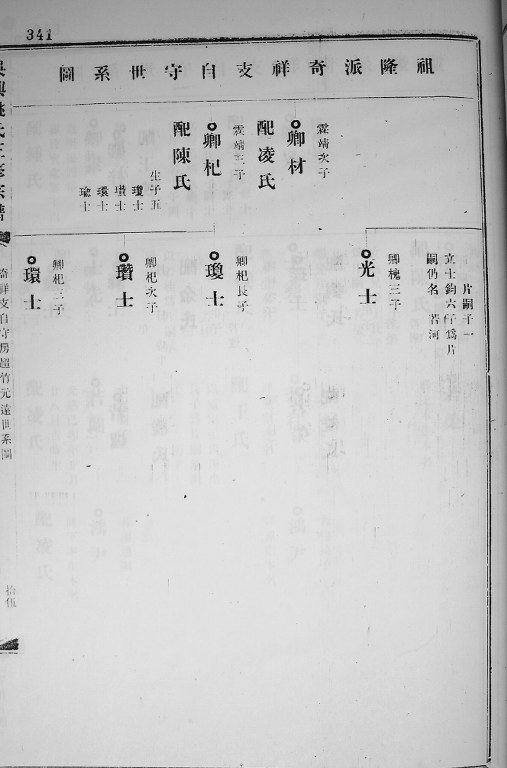 341
祖隆派奇祥支自守世系圖
霖靖次子
卿材
配凌氏
霖靖三子
卿杞
配陳氏
生子五
瓊士
瓚士
環士
片嗣子一
立士鈞六子為片
嗣仍名
若河
卿槐三子
光士
卿杞長子
瓊士
卿杞次子
瓚士
卿杞三子
環士
奇祥支自守房超竹元遠世系圖
拾伍